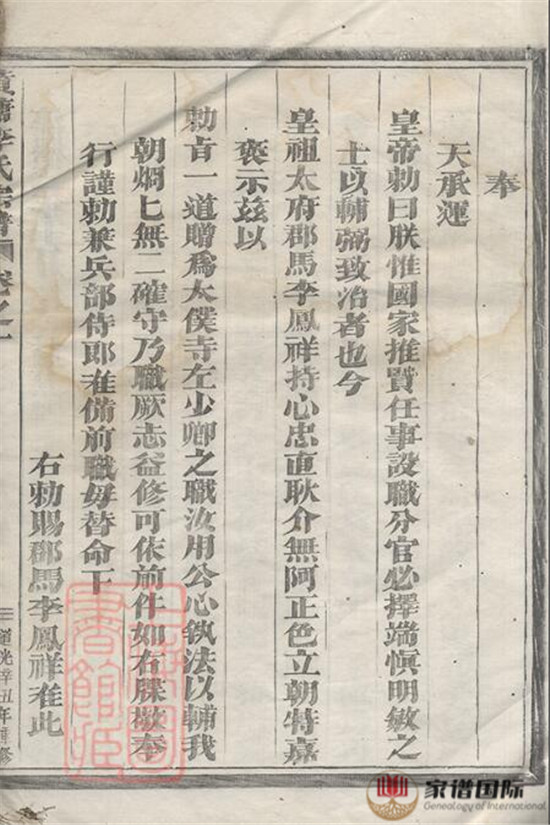 奉
天承運
皇帝勅曰朕惟國家推賢任事設職分官必擇端慎明敏之
士以輔弼致治者也今
皇祖太府郡馬李鳳祥持心忠直耿介無阿正色立朝特嘉
褒示茲以
勅旨一道贈爲太僕寺左少卿之職汝用公心執法以輔我
朝烱匕無二確守乃職厥志益修可依前件如右牒檄奉
行謹勅兼兵部侍郎准備前職毋替命下
右勅賜郡馬李鳳祥准此
李氏宗譜
卷之一
道光辛丑年重修
家谱国际
Genealogy of International